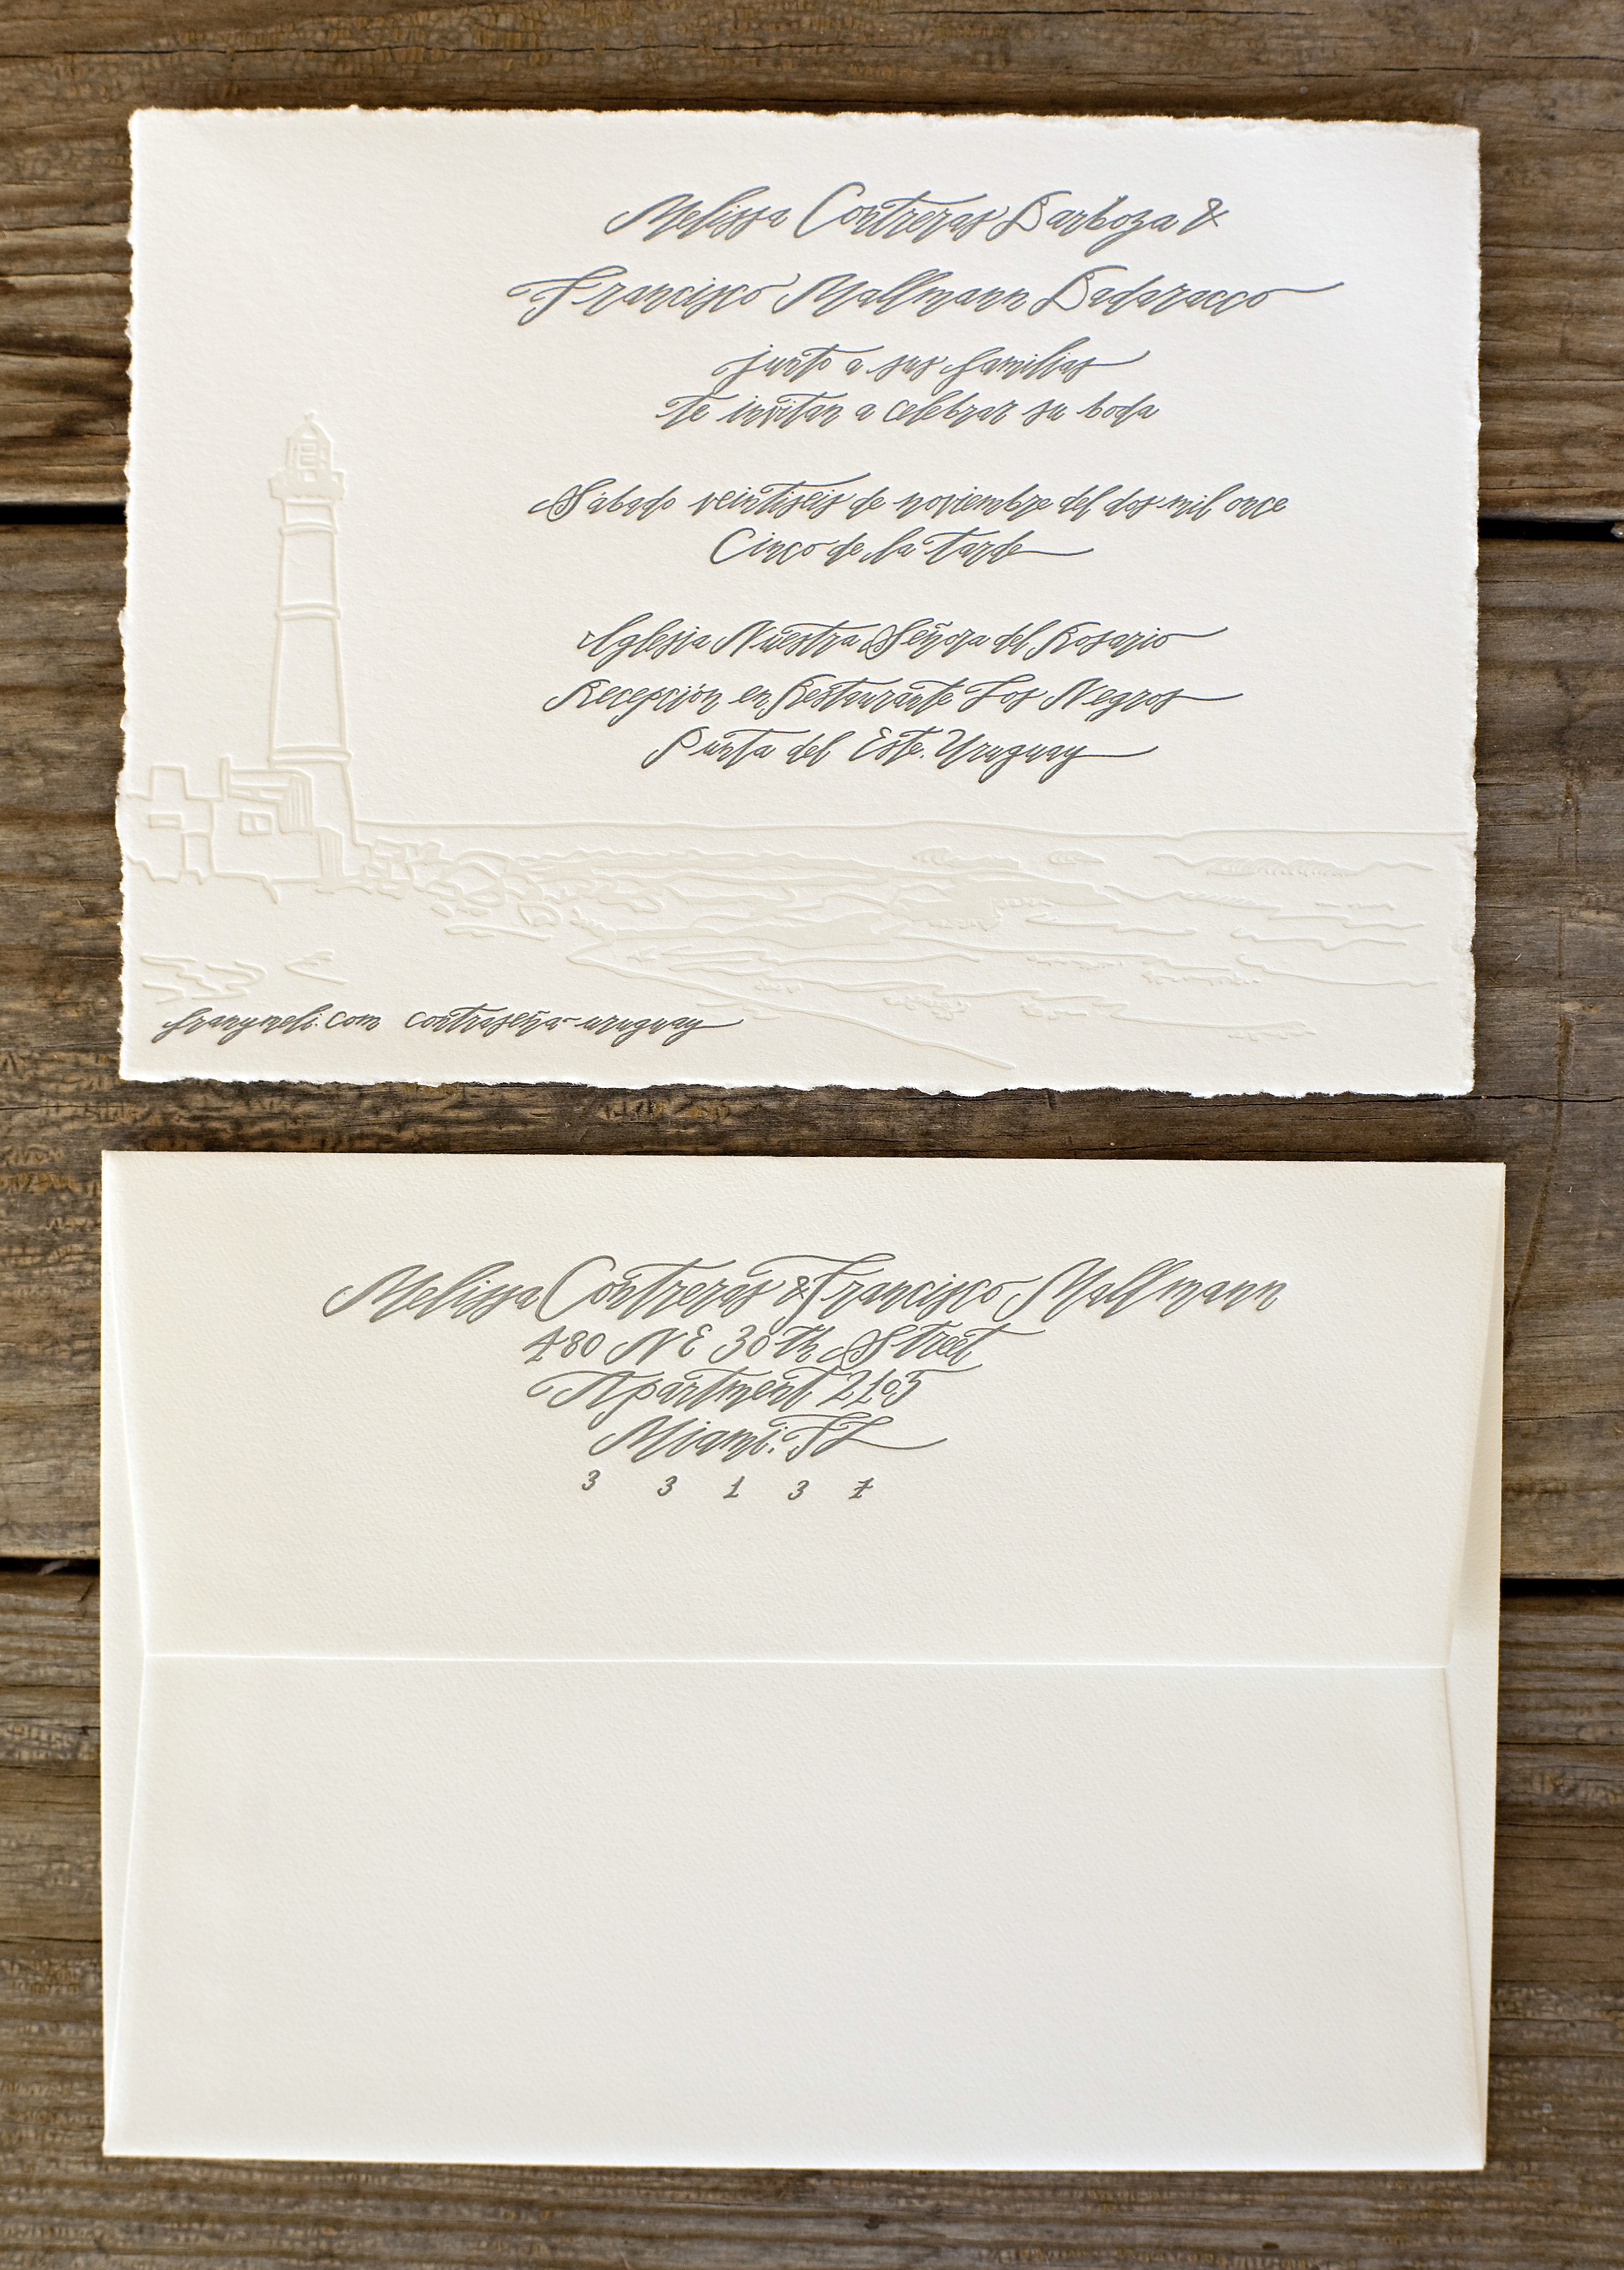 Melissa Contreras Barboza &
Francisco Mallmann Badaracco
junto a sus familias
te invitan a celebrar su boda
Sábado veintiseis de noviembre del dos mil once
Cinco de la tarde
Iglesia Nuestra Señora del Rosario
Recepción en Restaurante Los Negros
Punta del Este. Uruguay
franymeli.com contraseña-uruguay
Melissa Contreras & Francisco Mallmann
480 NE 30th Street
Apartment 2105
Miami. FL
3 3 1 3 7